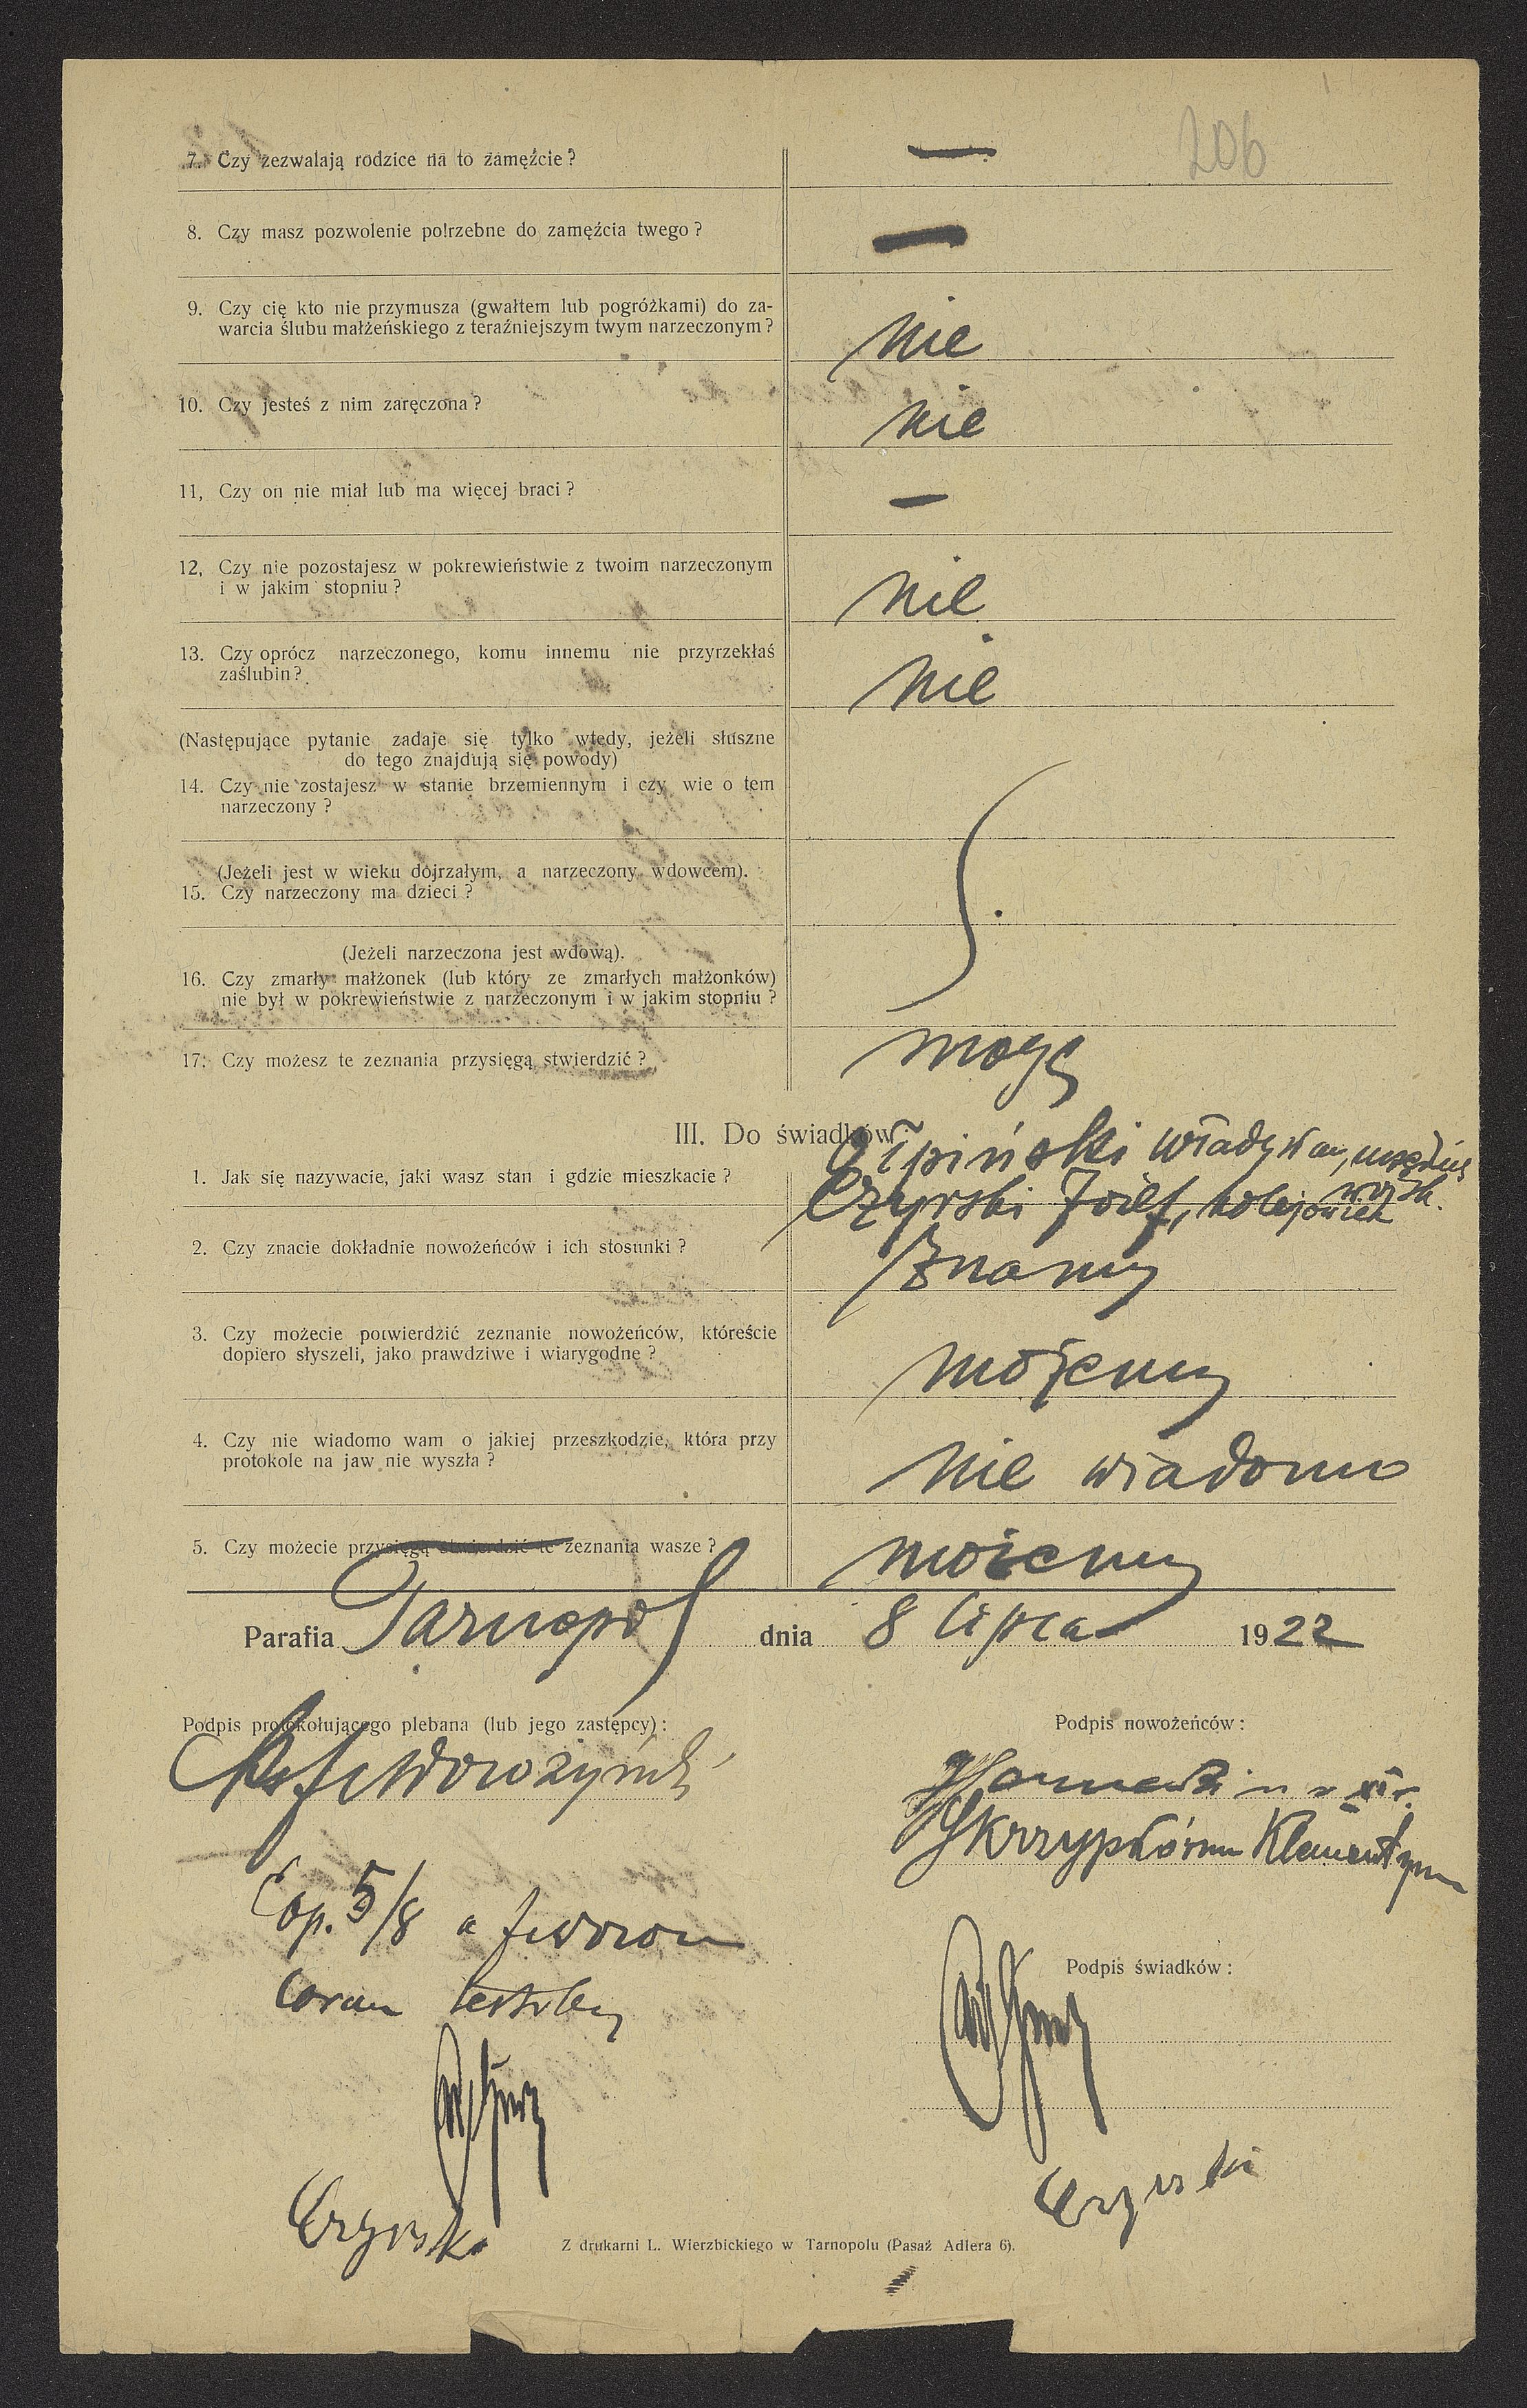 206
7. Czy zezwalają rodzice na to zamęźcie? —
8. Czy masz pozwolenie potrzebne do zamęźcia twego? —
9. Czy cię kto nie przymusza (gwałtem lub pogróżkami) do za-
warcia ślubu małżeńskiego z teraźniejszym twym narzeczonym? nie
10. Czy jesteś z nim zaręczona? nie
11, Czy on nie miał lub ma więcej braci? —
12, Czy nie pozostajesz w pokrewieństwie z twoim narzeczonym
i w jakim stopniu? nie
13. Czy oprócz narzeczonego, komu innemu nie przyrzekłaś
zaślubin? nie
(Następujące pytanie zadaje się tylko wtedy, jeżeli słuszne
do tego znajdują się powody)
14. Czy nie zostajesz w stanie brzemiennym i czy wie o tem
narzeczony?
(Jeżeli jest w wieku dojrzałym, a narzeczony wdowcem).
15. Czy narzeczony ma dzieci?
(Jeżeli narzeczona jest wdową).
16. Czy zmarły małżonek (lub który ze zmarłych małżonków)
nie był w pokrewieństwie z narzeczonym i w jakim stopniu?
17. Czy możesz te zeznania przysięgą stwierdzić? mogę
III. Do świadków:
1. Jak się nazywacie, jaki wasz stan i gdzie mieszkacie?
wojsk.
Czyrski Józef, kolejowiec
2. Czy znacie dokładnie nowożeńców i ich stosunki? Znamy
3. Czy możecie potwierdzić zeznanie nowożeńców, któreście
dopiero słyszeli, jako prawdziwe i wiarygodne? możemy
4. Czy nie wiadomo wam o jakiej przeszkodzie, która przy
protokole na jaw nie wyszła? nie wiadomo
5. Czy możecie przysięgą stwierdzić te zeznania wasze? możemy
Parafia Tarnopol dnia 8 lipca 1922
Podpis protokołującego plebana (lub jego zastępcy): Podpis nowożeńców:
Klementyna
Cop. 5/8
coram testibus
Podpis świadków:
Czyrski
Czyrski
Z drukarni L. Wierzbickiego w Tarnopolu (Pasaż Adlera 6).